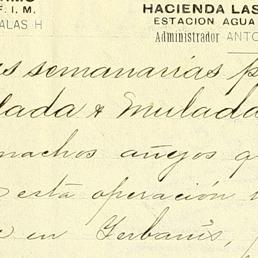 HACIENDA LAS
F. I. M.
ESTACION AGUA
ALAS H
Administrador ANTO
semanarias p
lada & Mulada
machos añejos q
está operación
en Yerbanís,